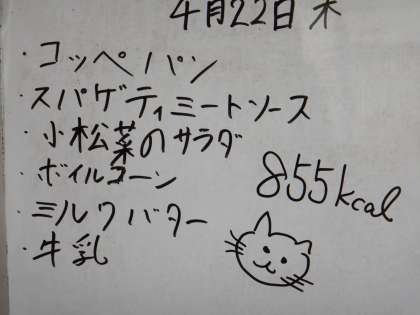 4月22日木
・コッペパン
・スパゲティミートソース
・小松菜のサラダ
・ボイルコーン
・ミルクバター
・牛乳
855kcal